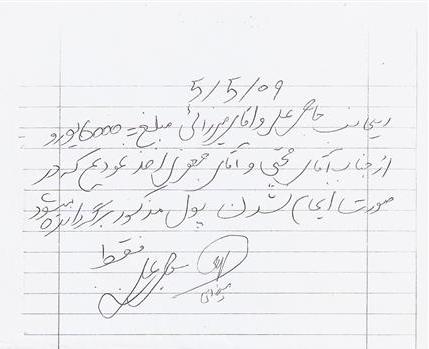 5/5/09
اینجانب حاج علی و آقای میرزائی مبلغ = 6000 یورو
از جناب آقای مجتبی و آقای جعفری اخذ نمودیم که در
صورت انجام نشدن پول مذکور برگردانده میشود
فقط